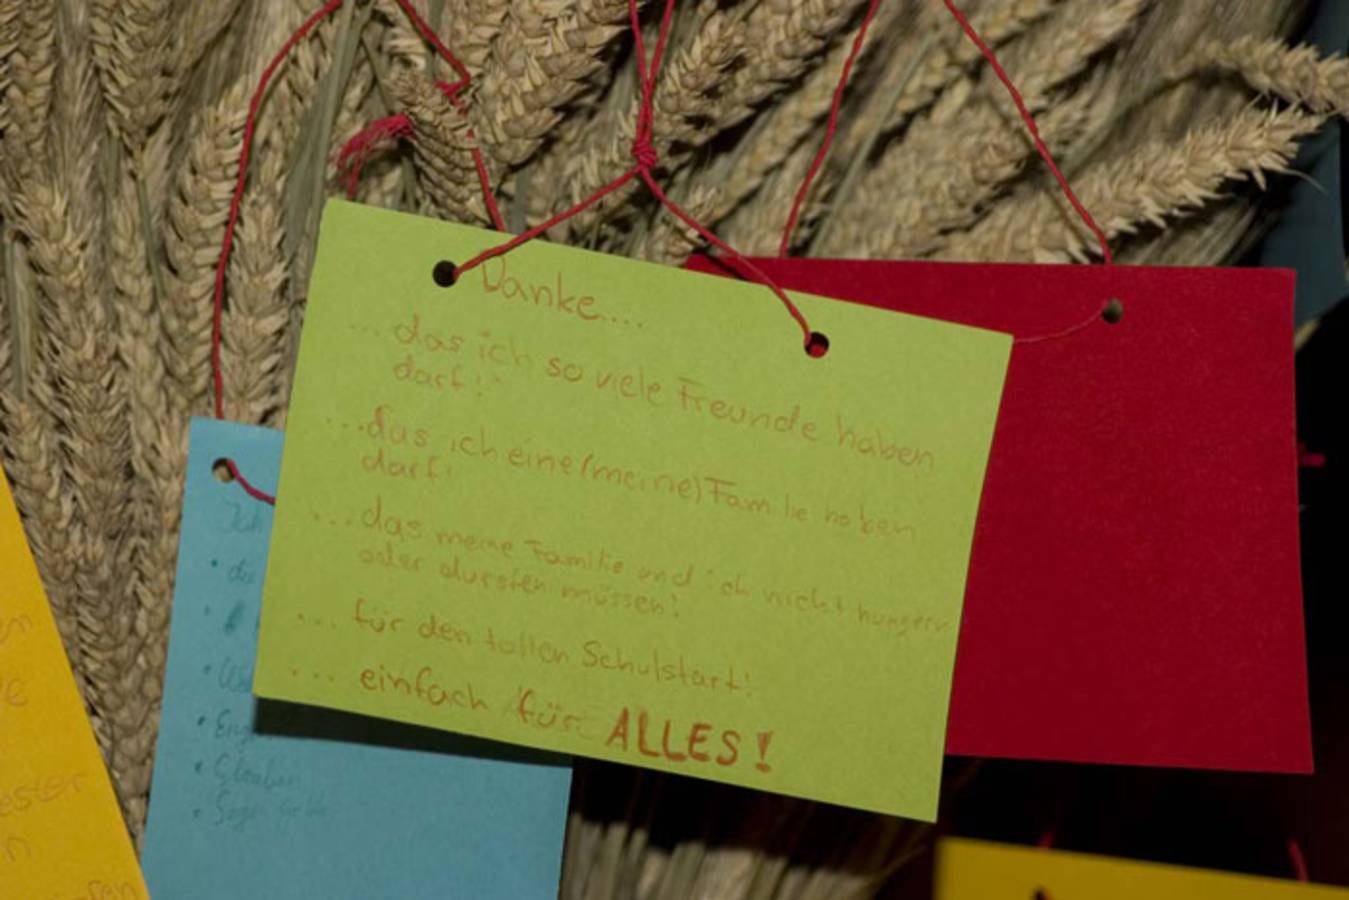 Danke...
... das ich so viele Freunde haben
darf!
...das ich eine (meine) Familie haben
darf!
...das meine Familie und ich nicht hungern
oder dursten müssen!
... für den tollen Schulstart!
... einfach für ALLES!
Ich
• die
• Glauben
en
ester
n